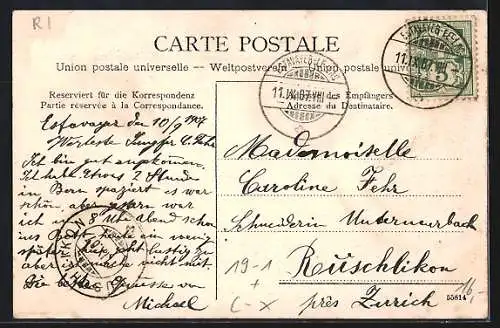 R1
CARTE POSTALE
Union postale universelle — Weltpostverein — Union postale universelle
Reserviert für die Korrespondenz
Partie réservée à la Correspondance.
des Empfängers
Adresse du Destinataire.
11.IX.07.VIII
11.IX.07.VIII
5
Estavayer den 10/9 1907
Werteste Jungfer C. Fehr
Ich bin gut angekommen,
Ich habe etwas 2 Stunde
in Bern spaziert es war
schön, aber gestern war
ich um 8 Uhr abend schon
ins Bett, heute ein wenig
später,
aber nicht mit
Die besten Grüsse von
Michael
Mademoiselle
Caroline Fehr
Schneiderin
Rüschlikon
près Zurich
19-1
+
C-X
55614
16,-